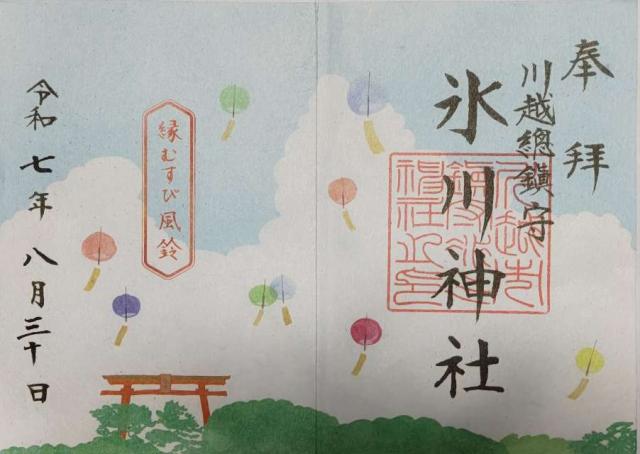 奉拝
川越總鎮守
氷川神社
縁むすび風鈴
令和七年八月三十日